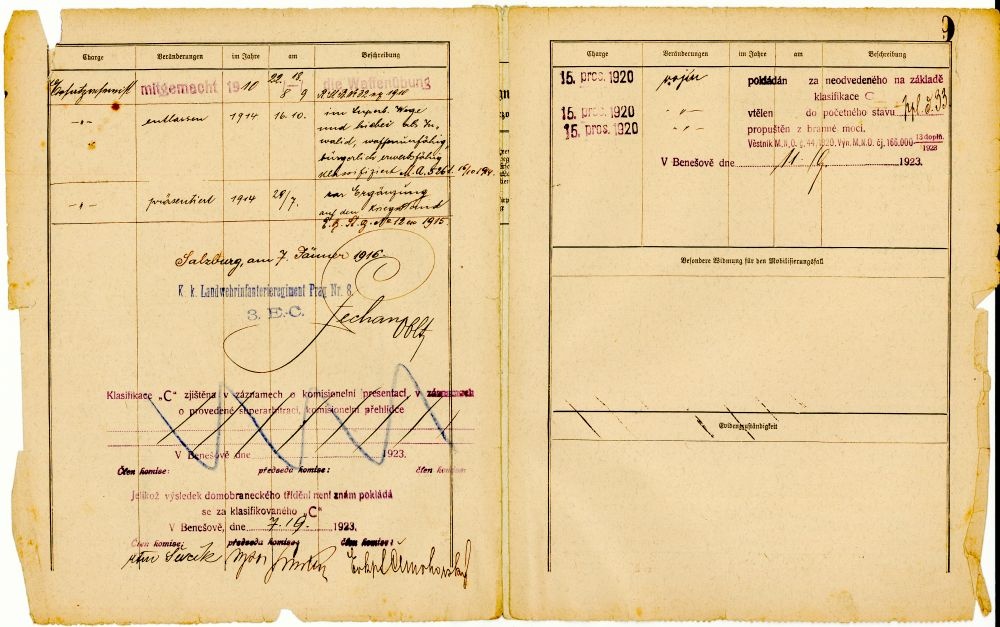 Charge Veränderungen im Jahre am Beschreibung
mitgemacht 1910 22/8 – 18/9 die Waffenübung
-"- entlassen 1914 16.10. im Superb. Wege
und hiebei als In-
valid, waffenunfähig,
bürgerlich erwerbfähig
klassifiziert M.A. 526
-"- präsentiert 1914 28/7. zur Ergänzung
auf den Kriegsstand
1915.
Salzburg, am 7. Jänner 1916.
K. k. Landwehrinfanterieregiment Prag Nr. 8.
3. E.-C.
Jechan Oblt
Klasifikace „C" zjištěna v záznamech o komisionelní presentaci, v záznamech
o provedené superarbitraci, komisionelní přehlídce
V Benešově dne 1923.
Člen komise: předseda komise: člen komise:
Jelikož výsledek domobraneckého třídění není znám pokládá
se za klasifikovaného „C"
V Benešově, dne 7./9. 1923.
Člen komise: předseda komise: člen komise:
9
Charge Veränderungen im Jahre am Beschreibung
15. pros. 1920 vojín pokládán za neodvedeného na základě
klasifikace C
15. pros. 1920 -"- vtělen do početního stavu
15. pros. 1920 -"- propuštěn z branné moci.
Věstník M.N.O. č. 44, 1920, Výn. M.N.O. čj. 165.000-13 dopln. 1923
V Benešově dne 11./9. 1923.
Besondere Widmung für den Mobilisierungsfall
Evidenzzuständigkeit